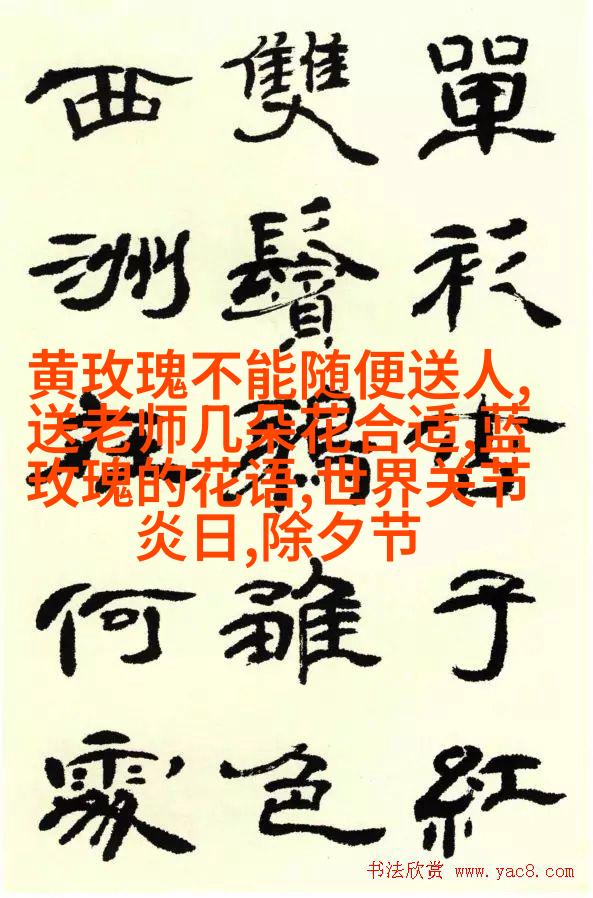 單衫子紅
雙鬢雛色
西洲何處
黄玫瑰不能随便送人,
送老师几朵花合适,蓝
玫瑰的花语,世界关节
炎日,除夕节
书法欣赏 www.yac8.com